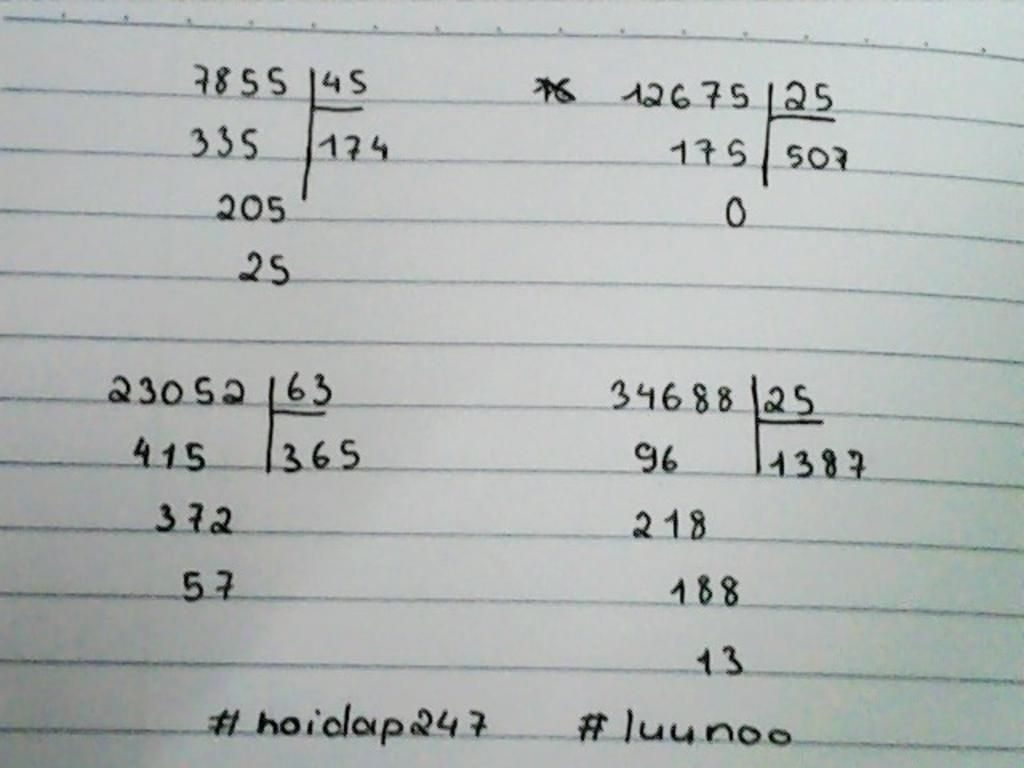 7855 | 45
335 | 174
205
25
12675 | 25
175 | 507
0
23052 | 63
415 | 365
372
57
34688 | 25
96 | 1387
218
188
13
#hoidap247 #luunoo